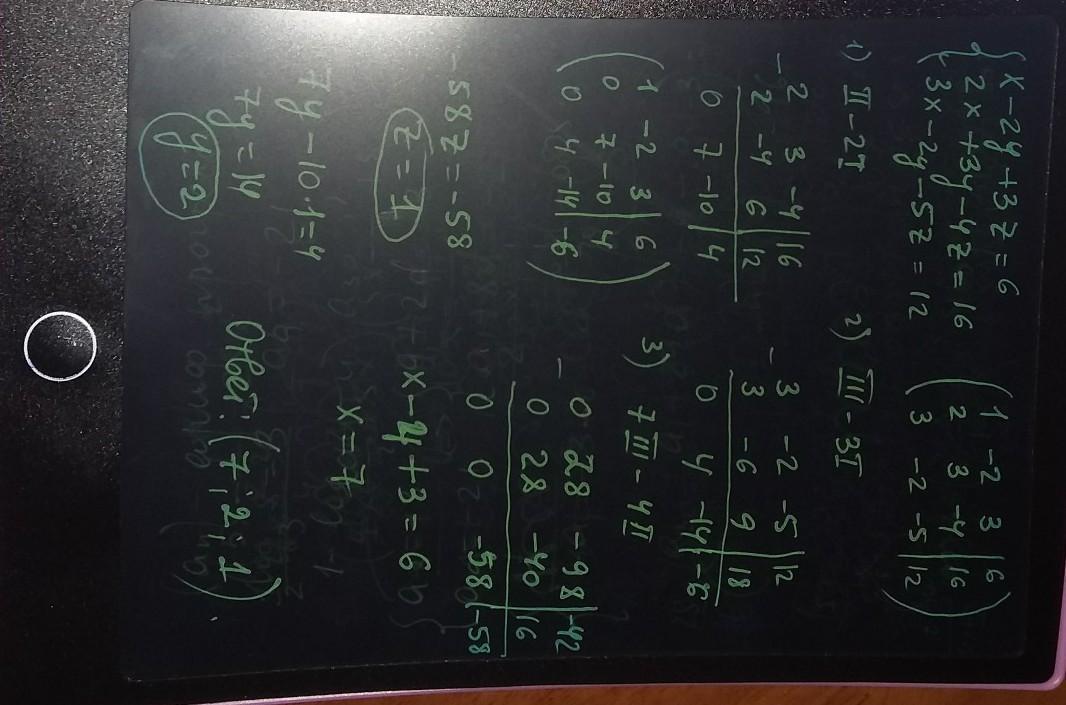 { x - 2y + 3z = 6
2x + 3y - 4z = 16
3x - 2y - 5z = 12
( 1 -2 3 | 6
2 3 -4 | 16
3 -2 -5 | 12 )
1) II - 2I
- 2 3 -4 | 16
2 -4 6 | 12
0 7 -10 | 4
2) III - 3I
- 3 -2 -5 | 12
3 -6 9 | 18
0 4 -14 | -6
( 1 -2 3 | 6
0 7 -10 | 4
0 4 -14 | -6 )
3) 7III - 4II
- 0 28 -98 | -42
0 28 -40 | 16
0 0 -58 | -58
-58z = -58
z = 1
7y - 10·1 = 4
7y = 14
y = 2
x - 4 + 3 = 6
x = 7
Ответ: (7; 2; 1)